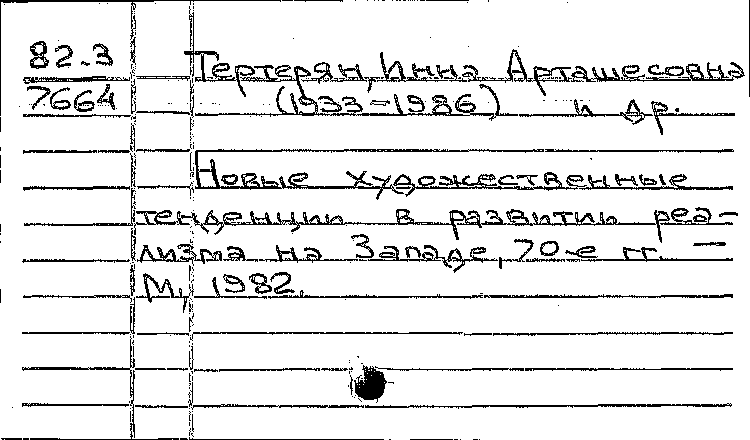 82.3 Тертерян, Инна Арташесовна
7664 (1933-1986) и др.
Новые художественные
тенденции в развитии реа-
лизма на Западе, 70-е гг. —
М., 1982.